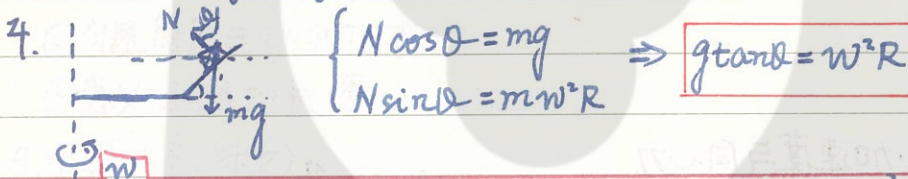 4.
N θ
mg
w
{ N cosθ = mg
N sinθ = mw²R
⇒ g tanθ = w²R